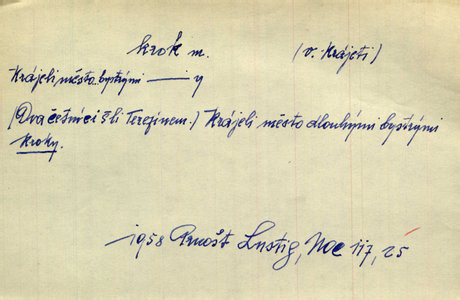 krok m. (v. krájeti)
Krájeli město bystrými —— y
(Dva četníci šli Terezínem.) Krájeli město dlouhými bystrými
kroky.
1958 Arnošt Lustig, Noc 117, 25